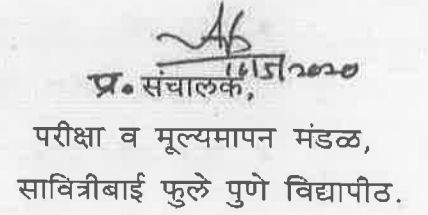 16/5/2020
प्र. संचालक,
परीक्षा व मूल्यमापन मंडळ,
सावित्रीबाई फुले पुणे विद्यापीठ.